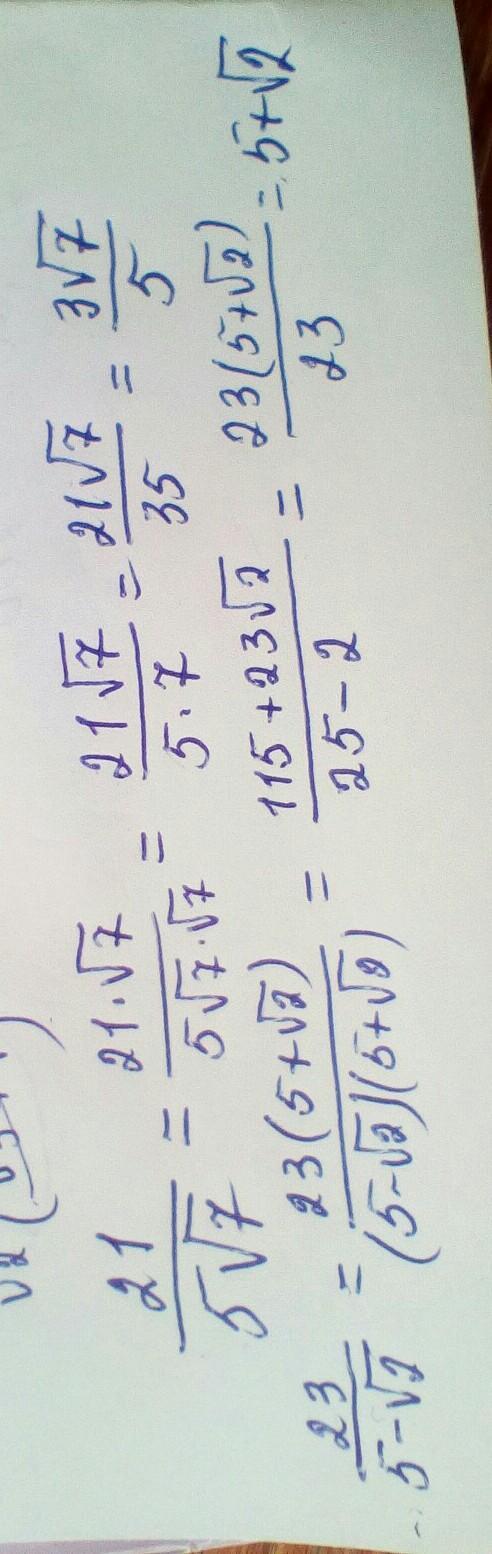 21/5√7 = 21·√7/5√7·√7 = 21√7/5·7 = 21√7/35 = 3√7/5
23/5-√2 = 23(5+√2)/(5-√2)(5+√2) = 115+23√2/25-2 = 23(5+√2)/23 = 5+√2